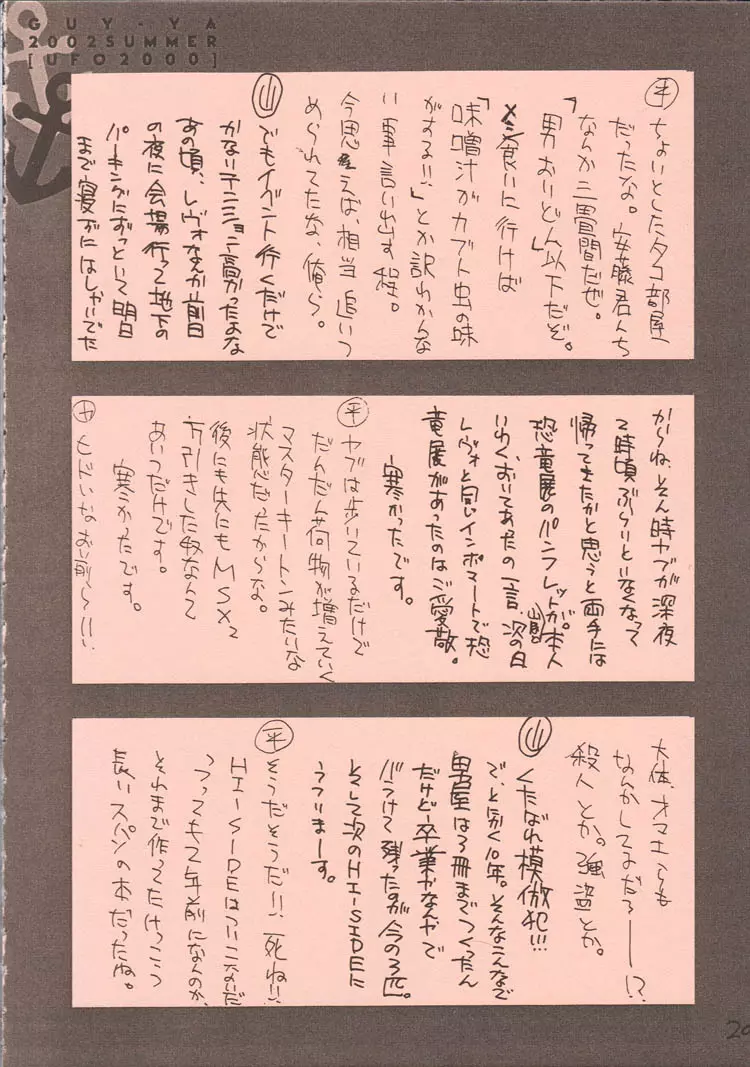 GUY-YA
2002SUMMER
[UFO2000]
㊥ ちょいとしたタコ部屋
だったな。安藤君んち
なんか三畳間だぜ。
「男おいどん以下だぞ。」
メシ食いに行けば
「味噌汁がカブト虫の味
がする!!」とか訳わかんな
い事言い出す程。
今思えば、相当追いつ
められてたな、俺ら。
山 でもイベント行くだけで
かなりテンション高かったよな
あの頃、レヴォなんか前日
の夜に会場行って地下の
パーキングにずっといて明日
まで寝ずにはしゃいでた
からね、そん時ヤブが深夜
2時頃ぶらりといなくなって
帰ってきたかと思うと両手には
恐竜展のパンフレットが。本人
いわく、おいてあたの一言、次の日
レヴォと同じインポマートで恐
竜展があったのはご愛敬。
寒かったです。
平 ヤブは歩いているだけで
だんだん荷物が増えていく
マスターキートンみたいな
状態だったからな。
後にも先にもMSX2
万引きした奴なんて
あいつだけです。
寒かったです。
ヤ ヒドいなお前ら!!
大体、オマエらも
なんかしてるだろーー!?
殺人とか。強盗とか。
山 くたばれ模倣犯!!!
で、と別く10年。そんなこんなで
男屋は3冊までつくったん
だけど卒業やなんやで
バラけて残ったのが今の3匹。
そして次のHI-SIDEに
うつりまーす。
平 そうだそうだ!!死ね!!
HI-SIDEはついこないだ
っつっても2年前になんのか、
それまで作ってたけっこう
長いスパンの本だったね。